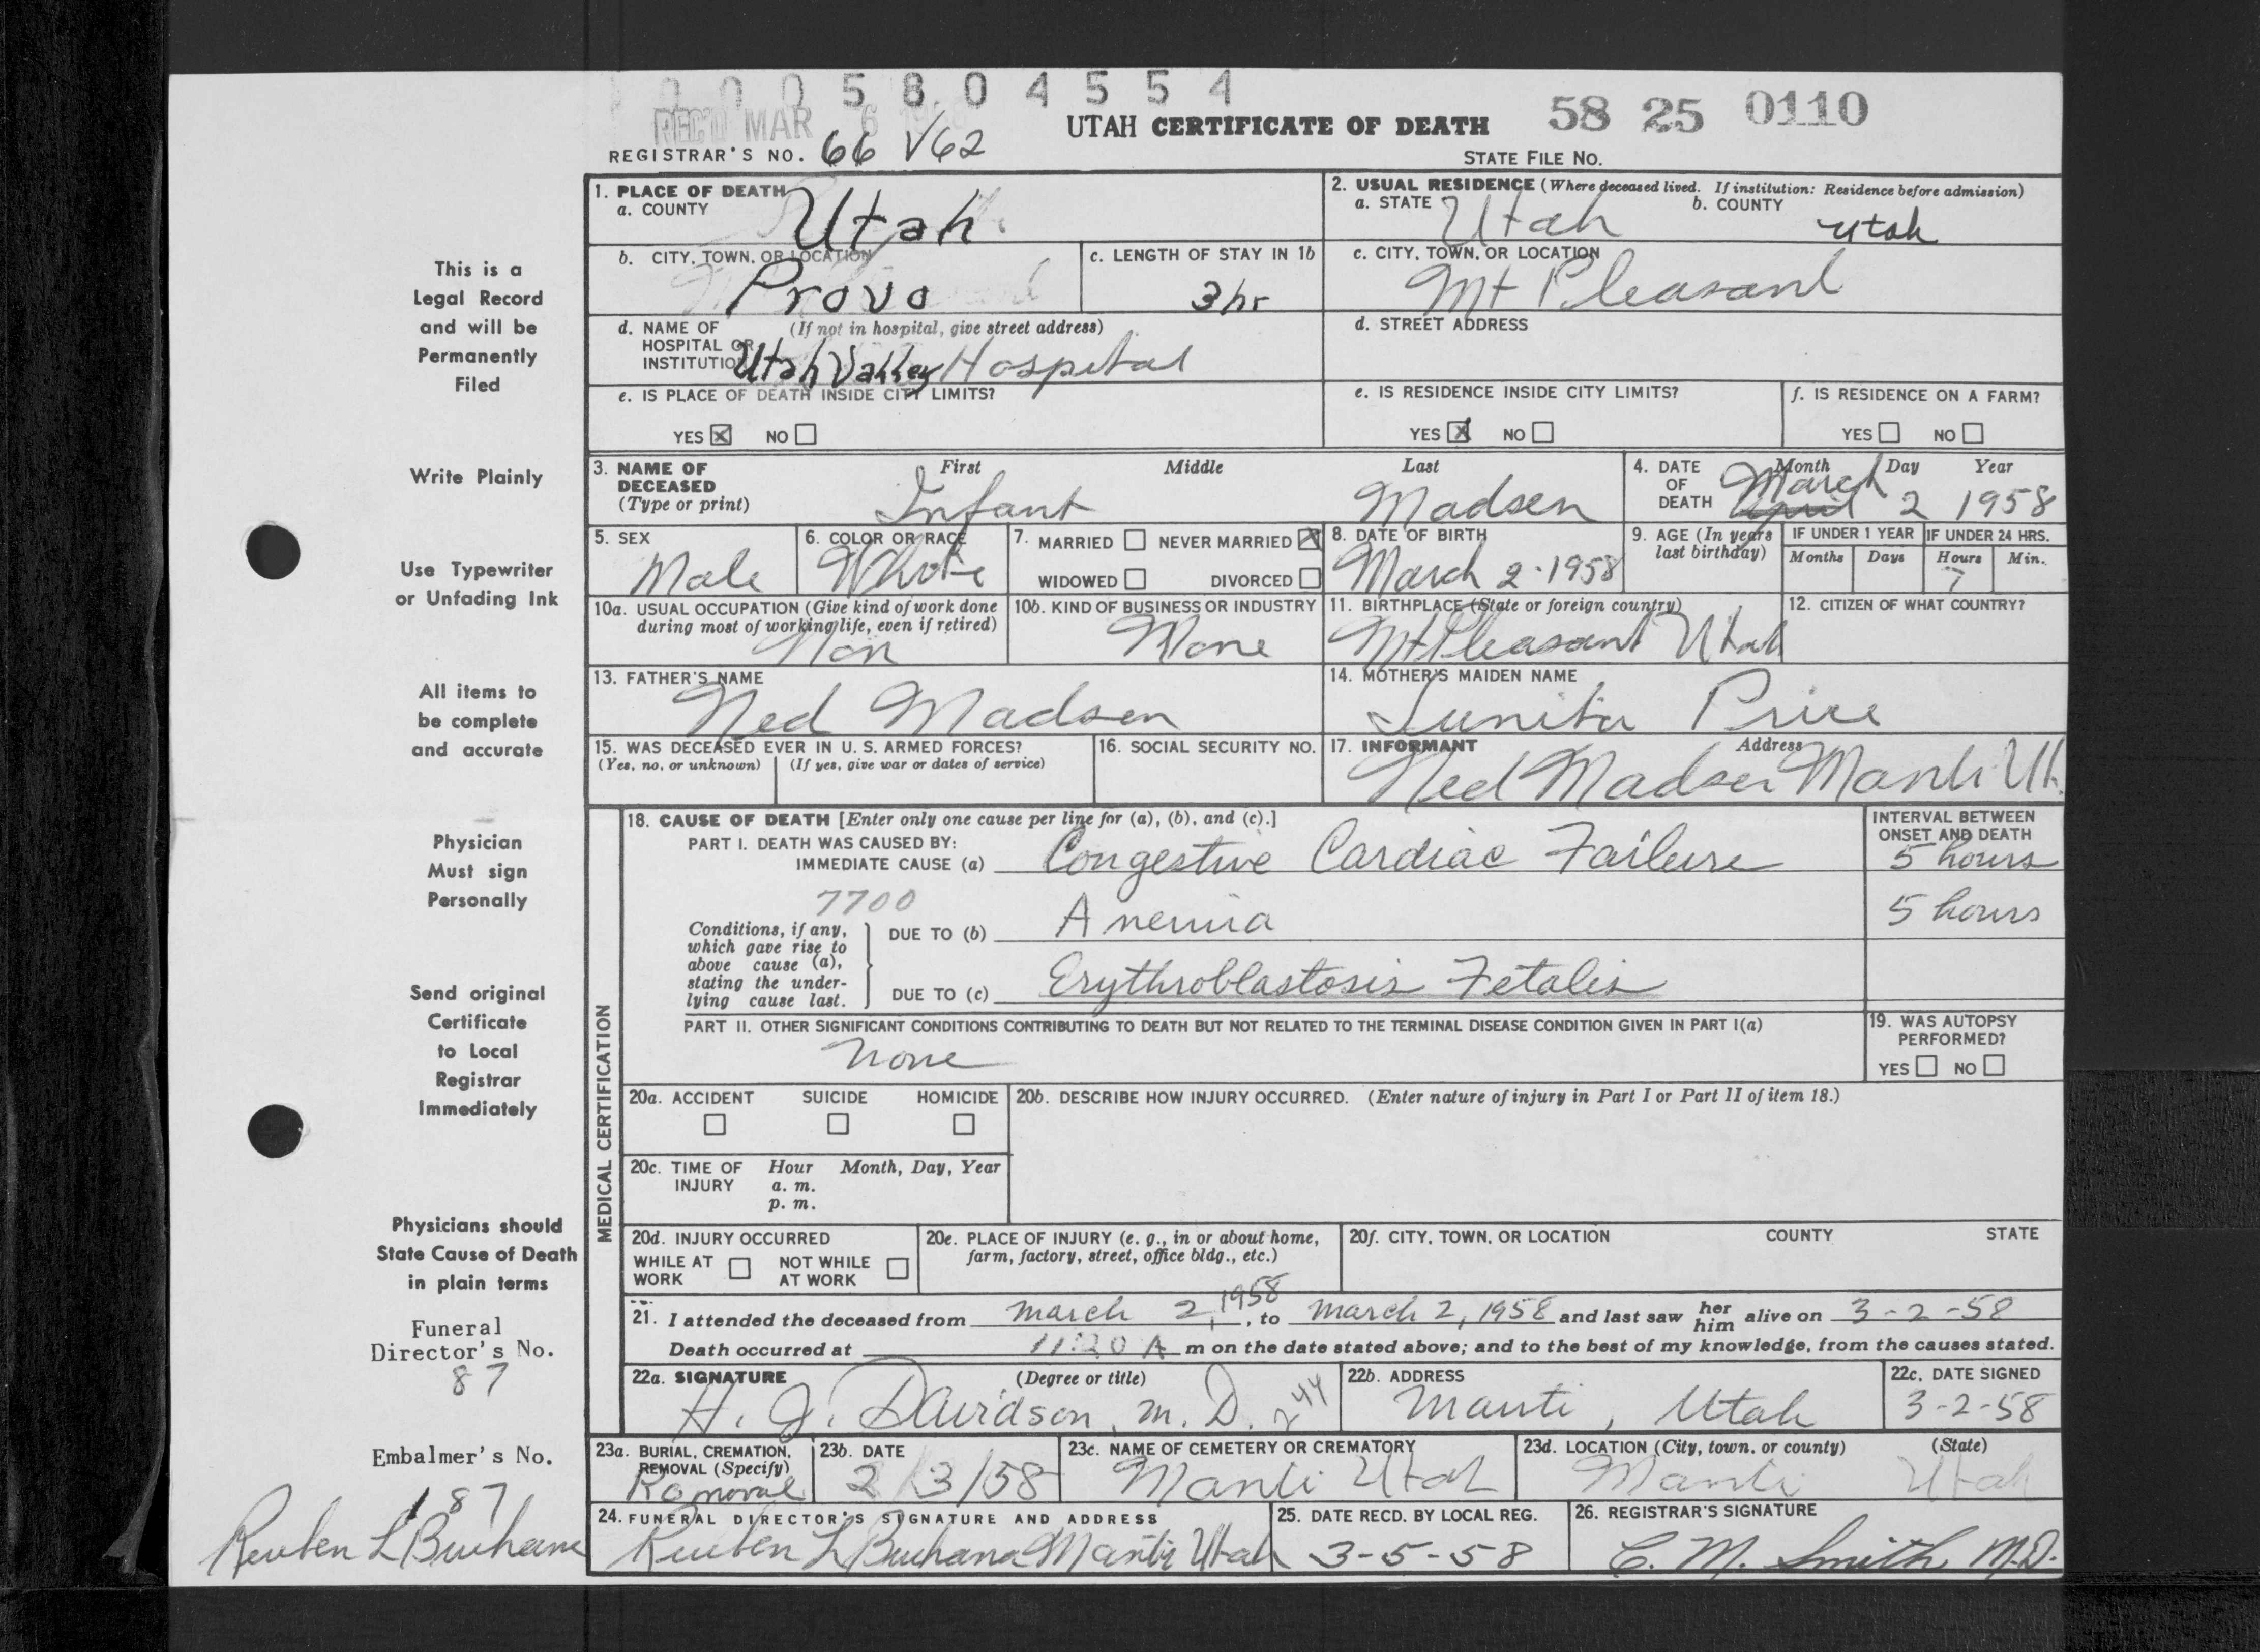 0 0 0 5 8 0 4 5 5 4
REC'D MAR 6
58 25 0110
UTAH CERTIFICATE OF DEATH
REGISTRAR'S NO. 66 V62
STATE FILE NO.
1. PLACE OF DEATH
a. COUNTY Utah
2. USUAL RESIDENCE (Where deceased lived. If institution: Residence before admission)
a. STATE Utah b. COUNTY Utah
b. CITY, TOWN, OR LOCATION Provo
c. LENGTH OF STAY IN 1b 3 hr
c. CITY, TOWN, OR LOCATION Mt Pleasant
d. NAME OF HOSPITAL OR INSTITUTION (If not in hospital, give street address) Utah Valley Hospital
d. STREET ADDRESS
e. IS PLACE OF DEATH INSIDE CITY LIMITS?
YES ☒ NO ☐
e. IS RESIDENCE INSIDE CITY LIMITS?
YES ☒ NO ☐
f. IS RESIDENCE ON A FARM?
YES ☐ NO ☐
3. NAME OF DECEASED (Type or print)
First Middle Last
Infant Madsen
4. DATE OF DEATH
Month Day Year
March April 2 1958
5. SEX Male
6. COLOR OR RACE White
7. MARRIED ☐ NEVER MARRIED ☒
WIDOWED ☐ DIVORCED ☐
8. DATE OF BIRTH March 2 - 1958
9. AGE (In years last birthday)
IF UNDER 1 YEAR
Months Days
IF UNDER 24 HRS.
Hours Min.
7
10a. USUAL OCCUPATION (Give kind of work done during most of working life, even if retired) Non
10b. KIND OF BUSINESS OR INDUSTRY None
11. BIRTHPLACE (State or foreign country) Mt Pleasant Utah
12. CITIZEN OF WHAT COUNTRY?
13. FATHER'S NAME Ned Madsen
14. MOTHER'S MAIDEN NAME Lunita Price
15. WAS DECEASED EVER IN U. S. ARMED FORCES?
(Yes, no, or unknown) (If yes, give war or dates of service)
16. SOCIAL SECURITY NO.
17. INFORMANT Address
Ned Madsen Manti Ut.
18. CAUSE OF DEATH [Enter only one cause per line for (a), (b), and (c).]
INTERVAL BETWEEN ONSET AND DEATH
PART I. DEATH WAS CAUSED BY:
IMMEDIATE CAUSE (a) Congestive Cardiac Failure 5 hours
7700
Conditions, if any, which gave rise to above cause (a), stating the underlying cause last.
DUE TO (b) Anemia 5 hours
DUE TO (c) Erythroblastosis Fetalis
PART II. OTHER SIGNIFICANT CONDITIONS CONTRIBUTING TO DEATH BUT NOT RELATED TO THE TERMINAL DISEASE CONDITION GIVEN IN PART I(a)
none
19. WAS AUTOPSY PERFORMED?
YES ☐ NO ☐
20a. ACCIDENT SUICIDE HOMICIDE
☐ ☐ ☐
20b. DESCRIBE HOW INJURY OCCURRED. (Enter nature of injury in Part I or Part II of item 18.)
20c. TIME OF INJURY Hour Month, Day, Year
a. m.
p. m.
20d. INJURY OCCURRED
WHILE AT WORK ☐ NOT WHILE AT WORK ☐
20e. PLACE OF INJURY (e. g., in or about home, farm, factory, street, office bldg., etc.)
20f. CITY, TOWN, OR LOCATION COUNTY STATE
21. I attended the deceased from March 2, 1958, to March 2, 1958 and last saw her him alive on 3-2-58
Death occurred at 11:20 A m on the date stated above; and to the best of my knowledge, from the causes stated.
22a. SIGNATURE (Degree or title)
H. J. Davidson, M. D. 244
22b. ADDRESS Manti, Utah
22c. DATE SIGNED 3-2-58
23a. BURIAL, CREMATION, REMOVAL (Specify) Removal
23b. DATE 2/3/58
23c. NAME OF CEMETERY OR CREMATORY Manti Utah
23d. LOCATION (City, town, or county) (State)
Manti Utah
24. FUNERAL DIRECTOR'S SIGNATURE AND ADDRESS
Reuben L Buchanan Manti Utah
25. DATE RECD. BY LOCAL REG. 3-5-58
26. REGISTRAR'S SIGNATURE C. M. Smith M.D.
MEDICAL CERTIFICATION
This is a
Legal Record
and will be
Permanently
Filed
Write Plainly
Use Typewriter
or Unfading Ink
All items to
be complete
and accurate
Physician
Must sign
Personally
Send original
Certificate
to Local
Registrar
Immediately
Physicians should
State Cause of Death
in plain terms
Funeral
Director's No.
87
Embalmer's No.
187
Reuben L Buchanan